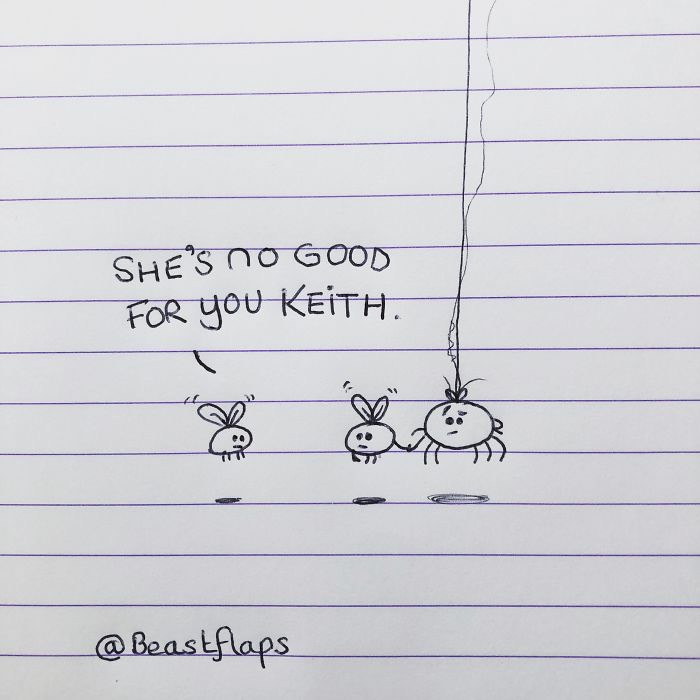 SHE'S NO GOOD
FOR YOU KEITH.
@Beastflaps